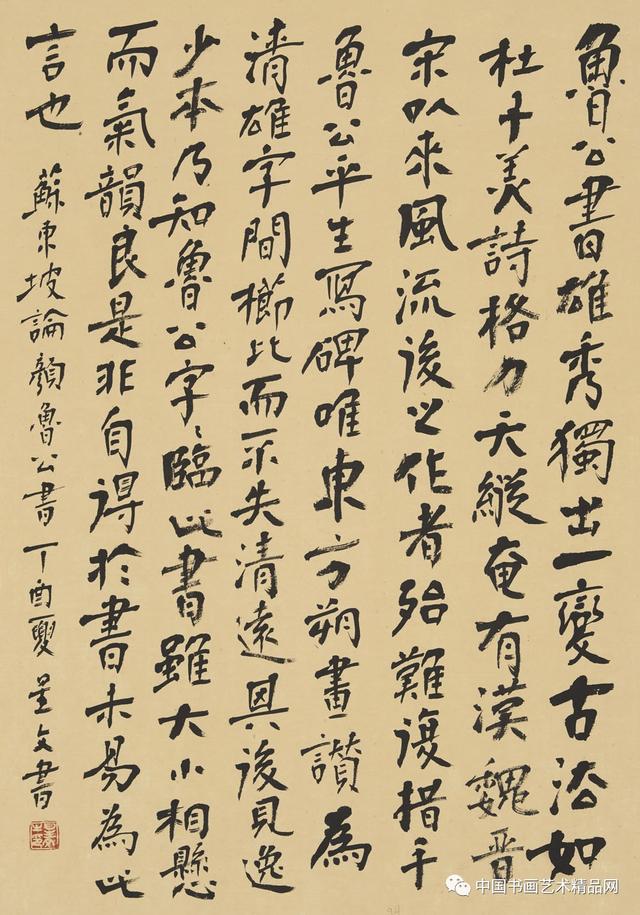 魯公書雄秀獨出一變古法如
杜子美詩格力天縱奄有漢魏晉
宋以來風流後之作者殆難復措手
魯公平生寫碑唯東方朔畫讚為
清雄字間櫛比而不失清遠其後見逸
少本乃知魯公字〻臨此書雖大小相懸
而氣韻良是非自得於書未易為此
言也 蘇東坡論顏魯公書 丁酉夏 文書
中国书画艺术精品网